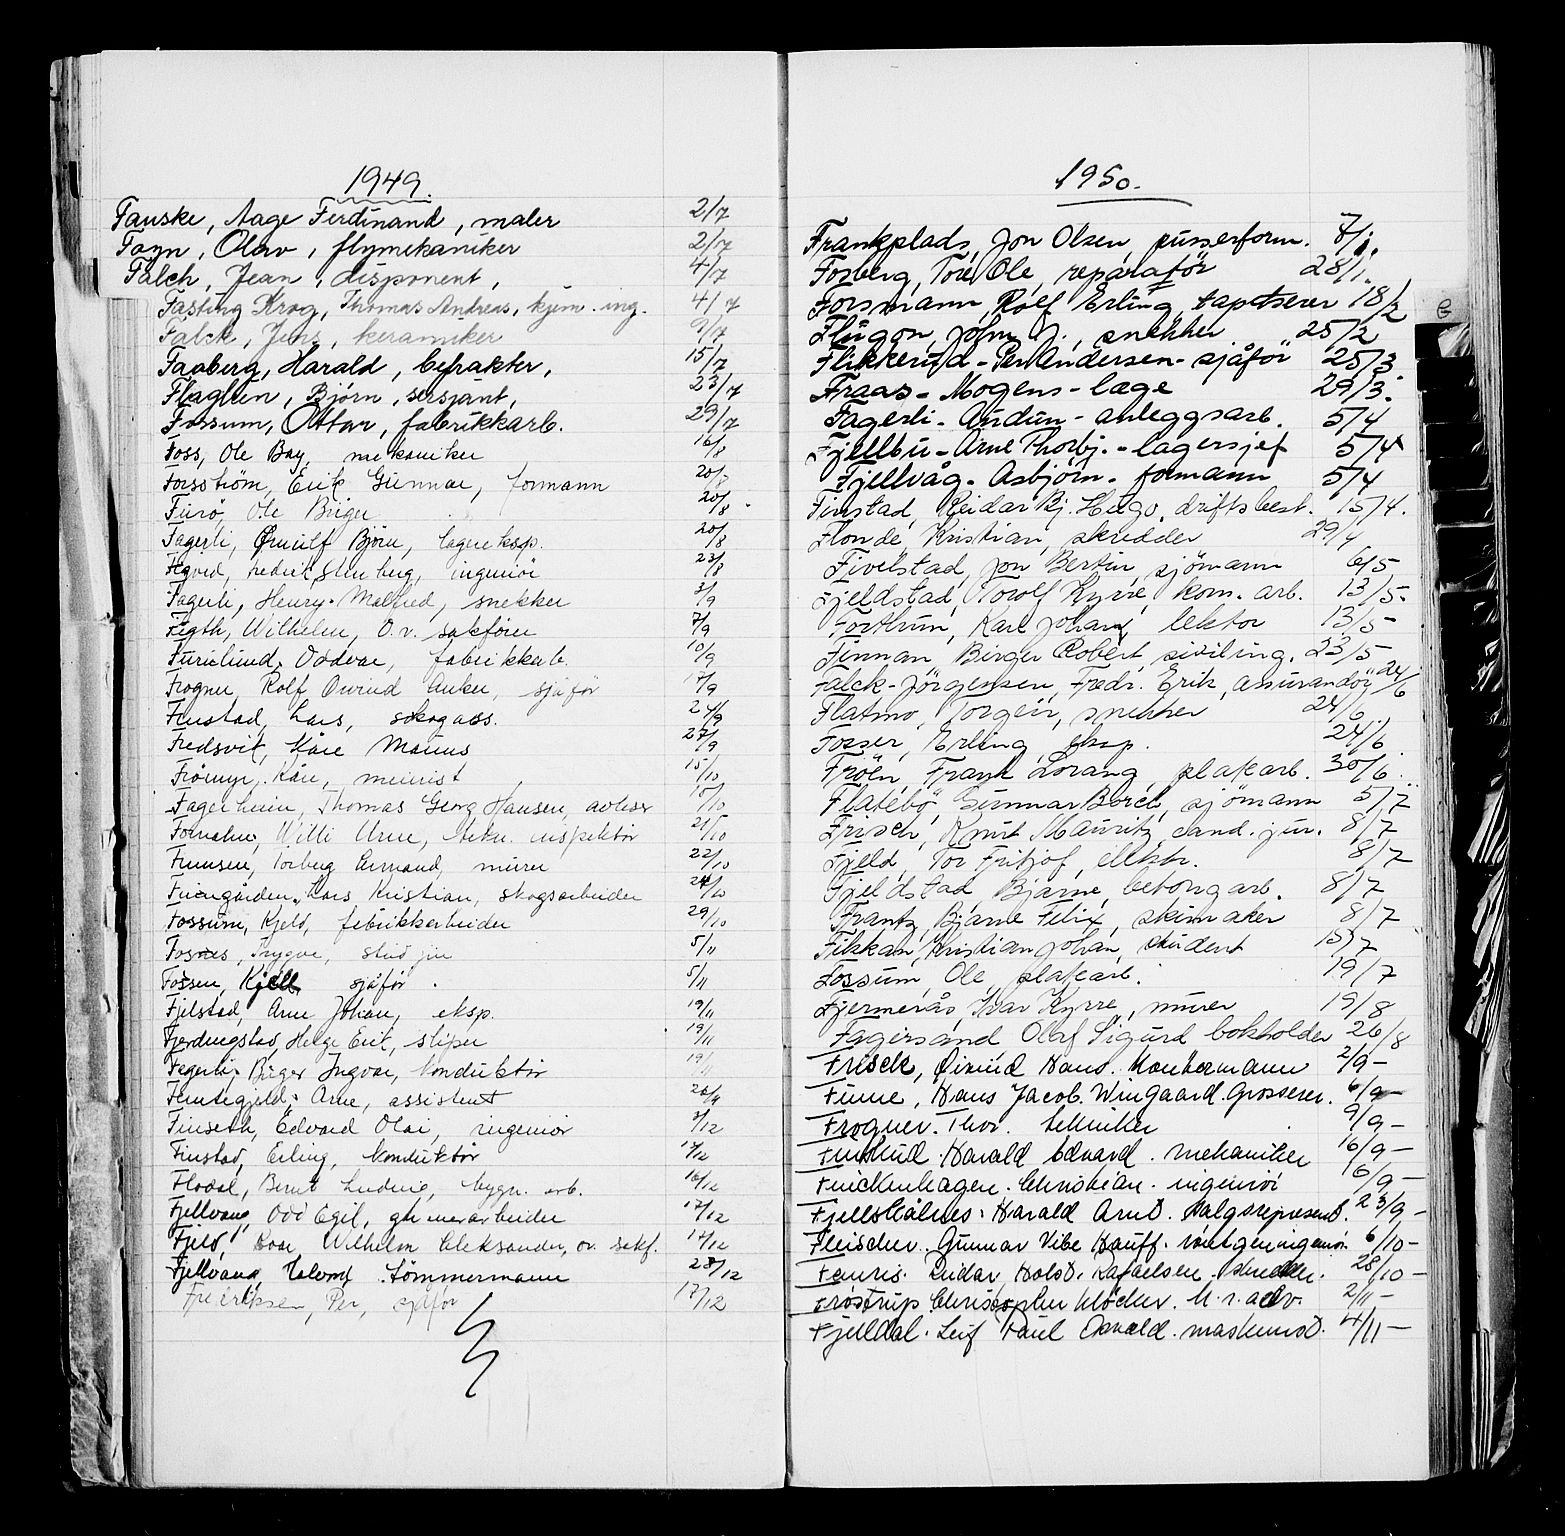 1949.
Fauske, Aage Ferdinand, maler 2/7
Foyn, Olav, flymekaniker 2/7
Falch, Jean, disponent, 4/7
Fasting Krog, Thomas Andreas, kjem. ing. 4/7
Falck, Jens, keramiker 9/7
Faaberg, Harald, befrakter, 15/7
Flagtien, Bjørn, sersjant, 23/7
Fossum, Ottar, fabrikkarb. 29/7
Foss, Ole Bay, mekaniker 16/8
Forsström, Erik Gunnar, formann 20/8
Furø, Ole Birger 20/8
Fagerli, Ørnulf Bjørn, lagereksp. 20/8
Stenberg, ingeniør 23/8
Fagerli, Henry Malfred, snekker 3/9
Wilhelm, O.r. sakfører 7/9
Furulund, Oddvar, fabrikkarb. 10/9
Frogner, Rolf Øivind Anker, sjåfør 17/9
Finstad, Lars, skogsass. 24/9
Fredsvik, Kåre Maurus 27/9
Frømyr, Kåre, minerist 15/10
Fagerheim, Thomas Georg Hansen, 15/10
Fornahn, Willi Arne, tekn. inspektør 21/10
Torberg Edmund, murer 22/10
Lars Kristian, skogsarbeider 24/10
Fossum, Kjeld, fabrikkarbeider 29/10
Fosnes, Trygve, stud jur 5/11
Fossen, Kjell sjåfør. 5/11
Fjelstad, Arne Johan, eksp. 19/11
Fjerdingstad, Helge Erik, sliper 19/11
Fagerli, Birger Ingvar, konduktør 19/11
Finstegjeld, Arne, assistent 26/11
Finseth, Edvard Olai, ingeniør 3/12
Finstad, Erling, konduktør 17/12
Flodal, Bernt Ludvig, bygn. arb. 16/12
Fjellvang, Odd Egil, gruvearbeider 17/12
Fjeld, Roar Wilhelm Aleksander, o.r. sakf. 17/12
Fjellvang, Halvord Tömmermann 28/12
Fredriksen, Per, sjåfør 17/12
1950.
Frankplads, Jon Olsen, pusserform. 7/1.
Fosberg, Tore Ole, reparatør 28/1.
Forsmann, Rolf Erling, tapetserer 18/2
Flugon, John J., snekker 25/2
Flikkerud - Per Andersen - sjåför 25/3
Fraas - Mogens - læge 29/3.
Fagerli - Audun - anleggsarb. 5/4
Fjellbu - Arne Thorbj. - lagersjef 5/4
Fjellvåg - Asbjörn - formann 5/4
Finstad, Reidar Bj. Hugo, driftsbest. 15/4.
Flonde, Kristian, skredder 29/4
Fivelstad, Jon Bertin, sjömann 6/5
Fjeldstad, Torolf Kyrre, kom. arb. 13/5.
Forthun, Karl Johan, lektor 13/5
Finnan, Birger Robert, siviling. 23/5
Falck-Jörgensen, Fredr. Erik, assurandör 24/6
Flatmo, Torgeir, snekker 24/6
Fosser, Erling, eksp. 24/6
Fröen, Frank Lorang, platearb. 30/6.
Flatebö, Gunnar Borch, sjömann 5/7
Frisch, Knut Mauritz, cand. jur. 8/7
Fjeld, Tor Fritjof, elektr. 8/7
Fjeldstad, Bjarne, betongarb. 8/7
Frantz, Bjarne Felix, skinmaker 8/7
Fikkan, Kristian Johan, student 15/7
Fossum, Ole, platearb. 19/7
Fjermerås, Ivar Kyrre, murer 19/8
Fagersand Olaf Sigurd bokholder 26/8
Frisch, Øivind Hans. Kontormann 2/9 -
Finne, Hans Jacob Wingaard. Grosserer. 6/9 -
Frogner. Thor. tekniker 9/9 -
Harald Edvard. mekaniker 16/9 -
Frickenhagen. Christian. ingeniør 6/9 -
Fjellskålnes. Harald Arnt. Salgsrepresent. 23/9 -
Fleischer. Gunnar Vibe Hauff. röntgeningeniør 6/10 -
Fauris. Reidar Holst. Rafaelsen. snekker. 28/10 -
Frøstrup Christopher Klöcker. H.r. adv. 2/11 -
Fjelldal. Leif Paul Osvald. maskinist. 4/11 -
G